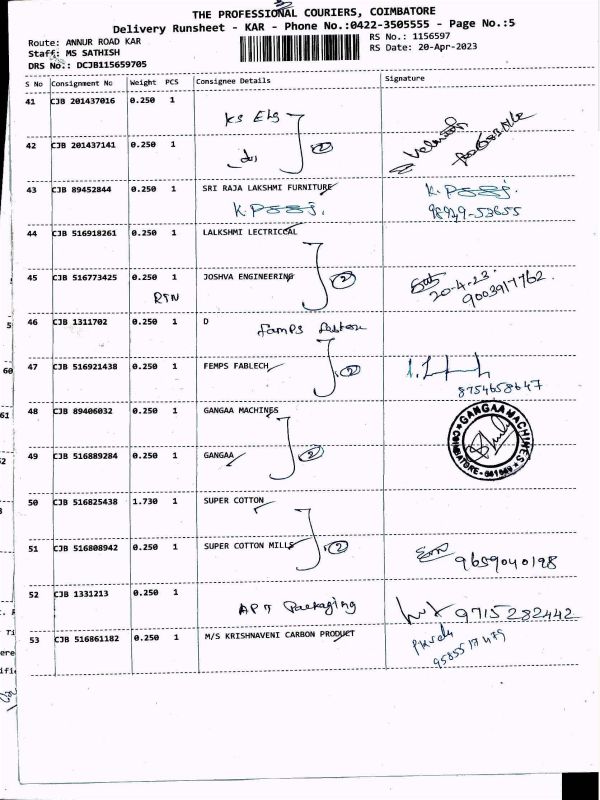 THE PROFESSIONAL COURIERS, COIMBATORE
Delivery Runsheet - KAR - Phone No.:0422-3505555 - Page No.:5
Route: ANNUR ROAD KAR
RS No.: 1156597
Staff: MS SATHISH
RS Date: 20-Apr-2023
DRS No.: DCJB115659705
S No Consignment No Weight PCS Consignee Details Signature
41 CJB 201437016 0.250 1
42 CJB 201437141 0.250 1
2
43 CJB 89452844 0.250 1 SRI RAJA LAKSHMI FURNITURE
98949-53655
44 CJB 516918261 0.250 1 LALKSHMI LECTRICCAL
45 CJB 516773425 0.250 1 JOSHVA ENGINEERING 2
RTN
20-4-23
9003917762
46 CJB 1311702 0.250 1 D
47 CJB 516921438 0.250 1 FEMPS FABLECH 2
8754658647
48 CJB 89406032 0.250 1 GANGAA MACHINES
GANGAA MACHINES
49 CJB 516889284 0.250 1 GANGAA 2
50 CJB 516825438 1.730 1 SUPER COTTON
51 CJB 516808942 0.250 1 SUPER COTTON MILLS 2
9659040198
52 CJB 1331213 0.250 1
APT Packaging
9715282442
53 CJB 516861182 0.250 1 M/S KRISHNAVENI CARBON PRODUCT